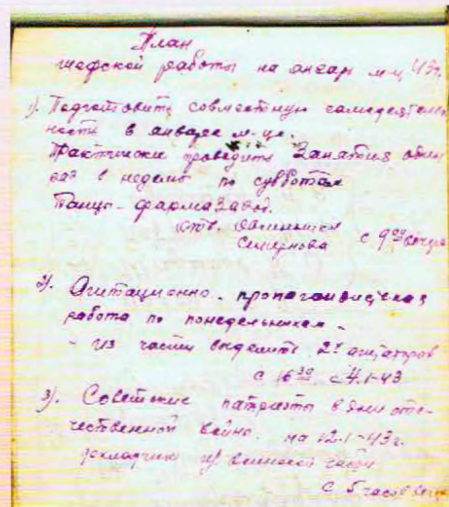 План
шефской работы на январь м-ц 43 г.
1). Подготовить совместную самодеятель
ность в январе м-це.
Практически проводить занятия один
раз в неделю по субботам
Танцы - фармазавод.
отв.
Семернова с 9 00 вечера
2). Агитационно - пропагандистская
работа по понедельникам -
- из части выделить 2х агитаторов
с 16 30 с 4.1-43
3). Советские патриоты в дни оте-
чественной войны. на 12.1-43 г.
докладчик из воинской части
с 5 часов вечера